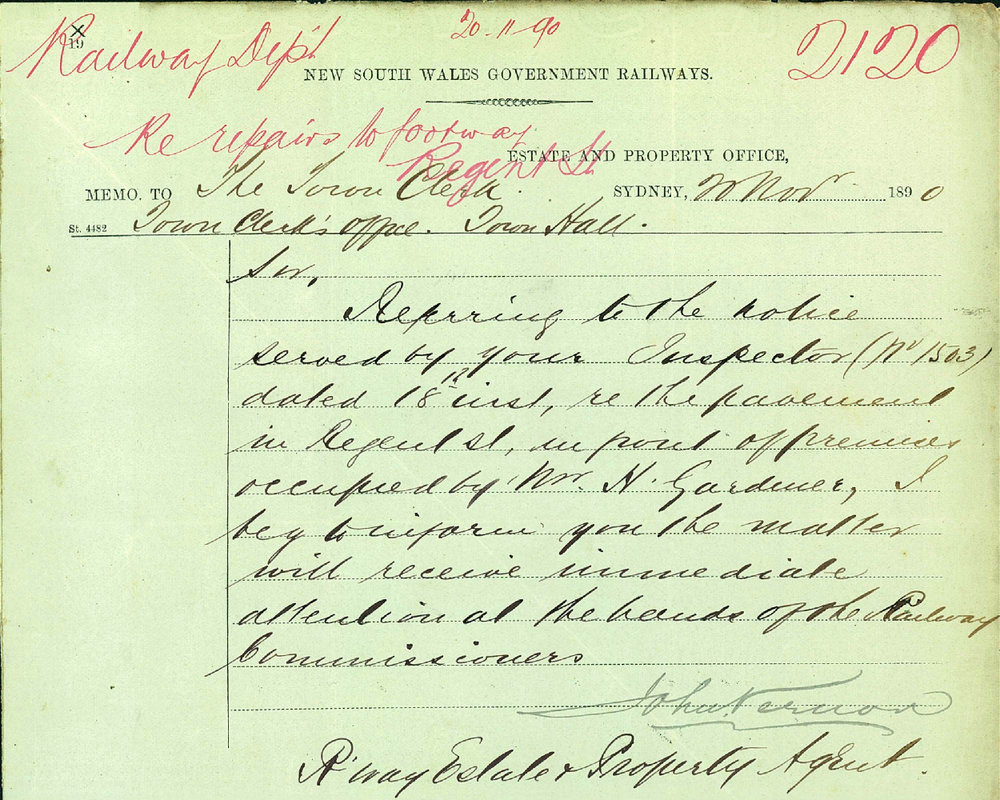 x
19
Railway Dept
20-11-90
2120
NEW SOUTH WALES GOVERNMENT RAILWAYS.
Re repairs to footway
Regent St
ESTATE AND PROPERTY OFFICE,
MEMO. TO The Town Clerk. SYDNEY, 20 Nov 1890
St. 4482 Town Clerk's office. Town Hall.
Sir,
Referring to the notice
served by your Inspector (No 1503)
dated 18th inst, re the pavement
in Regent St, in front of premises
occupied by Mr. H. Gardiner, I
beg to inform you the matter
will receive immediate
attention at the hands of the Railway
Commissioners
John Vernon
R'way Estate & Property Agent.